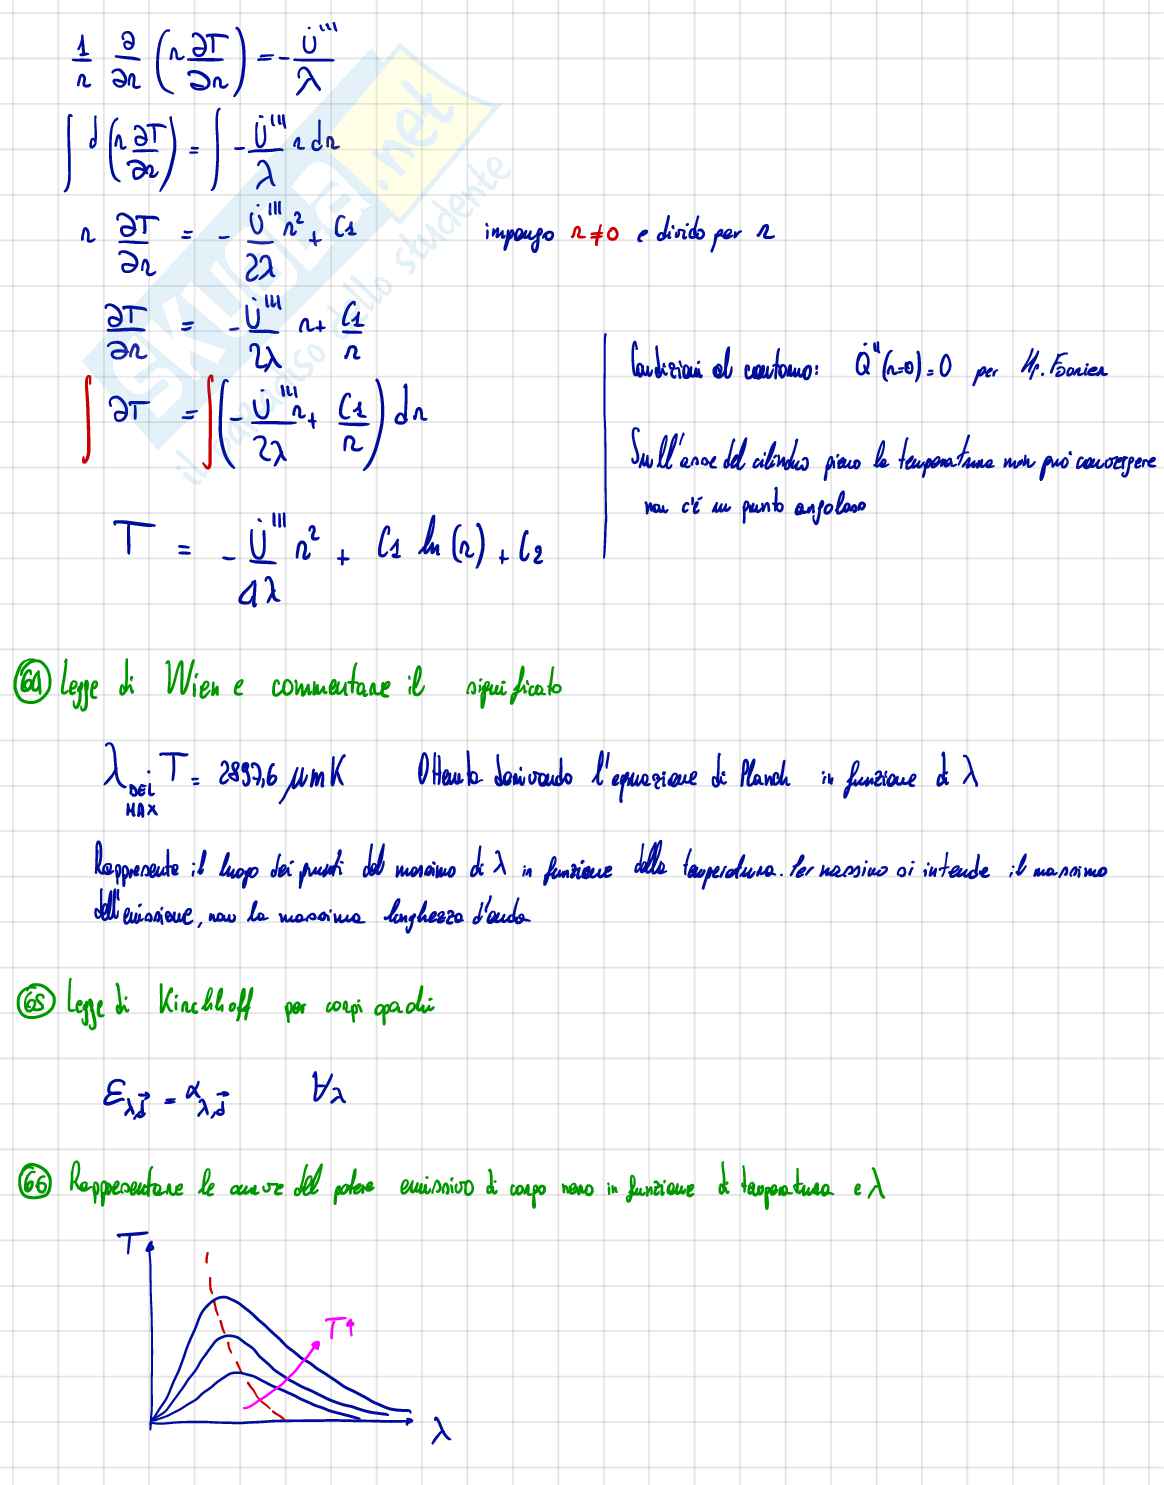 1/r ∂/∂r (r ∂T/∂r) = - U̇'''/λ
∫ d (r ∂T/∂r) = ∫ - U̇'''/λ r dr
r ∂T/∂r = - U̇'''/2λ r² + C1 impongo r≠0 e divido per r
∂T/∂r = - U̇'''/2λ r + C1/r
∫ ∂T = ∫ (- U̇'''/2λ r + C1/r) dr
T = - U̇'''/4λ r² + C1 ln(r) + C2
Condizioni al contorno: Q̇''(r=0)=0 per Hp. Fourier
Sull'asse del cilindro pieno la temperatura non può convergere
non c'è un punto angoloso
64 Legge di Wien e commentare il significato
λ DEL MAX T = 2897,6 μmK Ottenuta derivando l'equazione di Planck in funzione di λ
Rappresenta il luogo dei punti del massimo di λ in funzione della temperatura. Per massimo si intende il massimo
dell'emissione, non la massima lunghezza d'onda
65 Legge di Kirchhoff per corpi opachi
ε λ,d⃗ = α λ,d⃗ ∀λ
66 Rappresentare le curve del potere emissivo di corpo nero in funzione di temperatura e λ
T
T↑
λ
SKUOLA.net
il paradiso dello studente